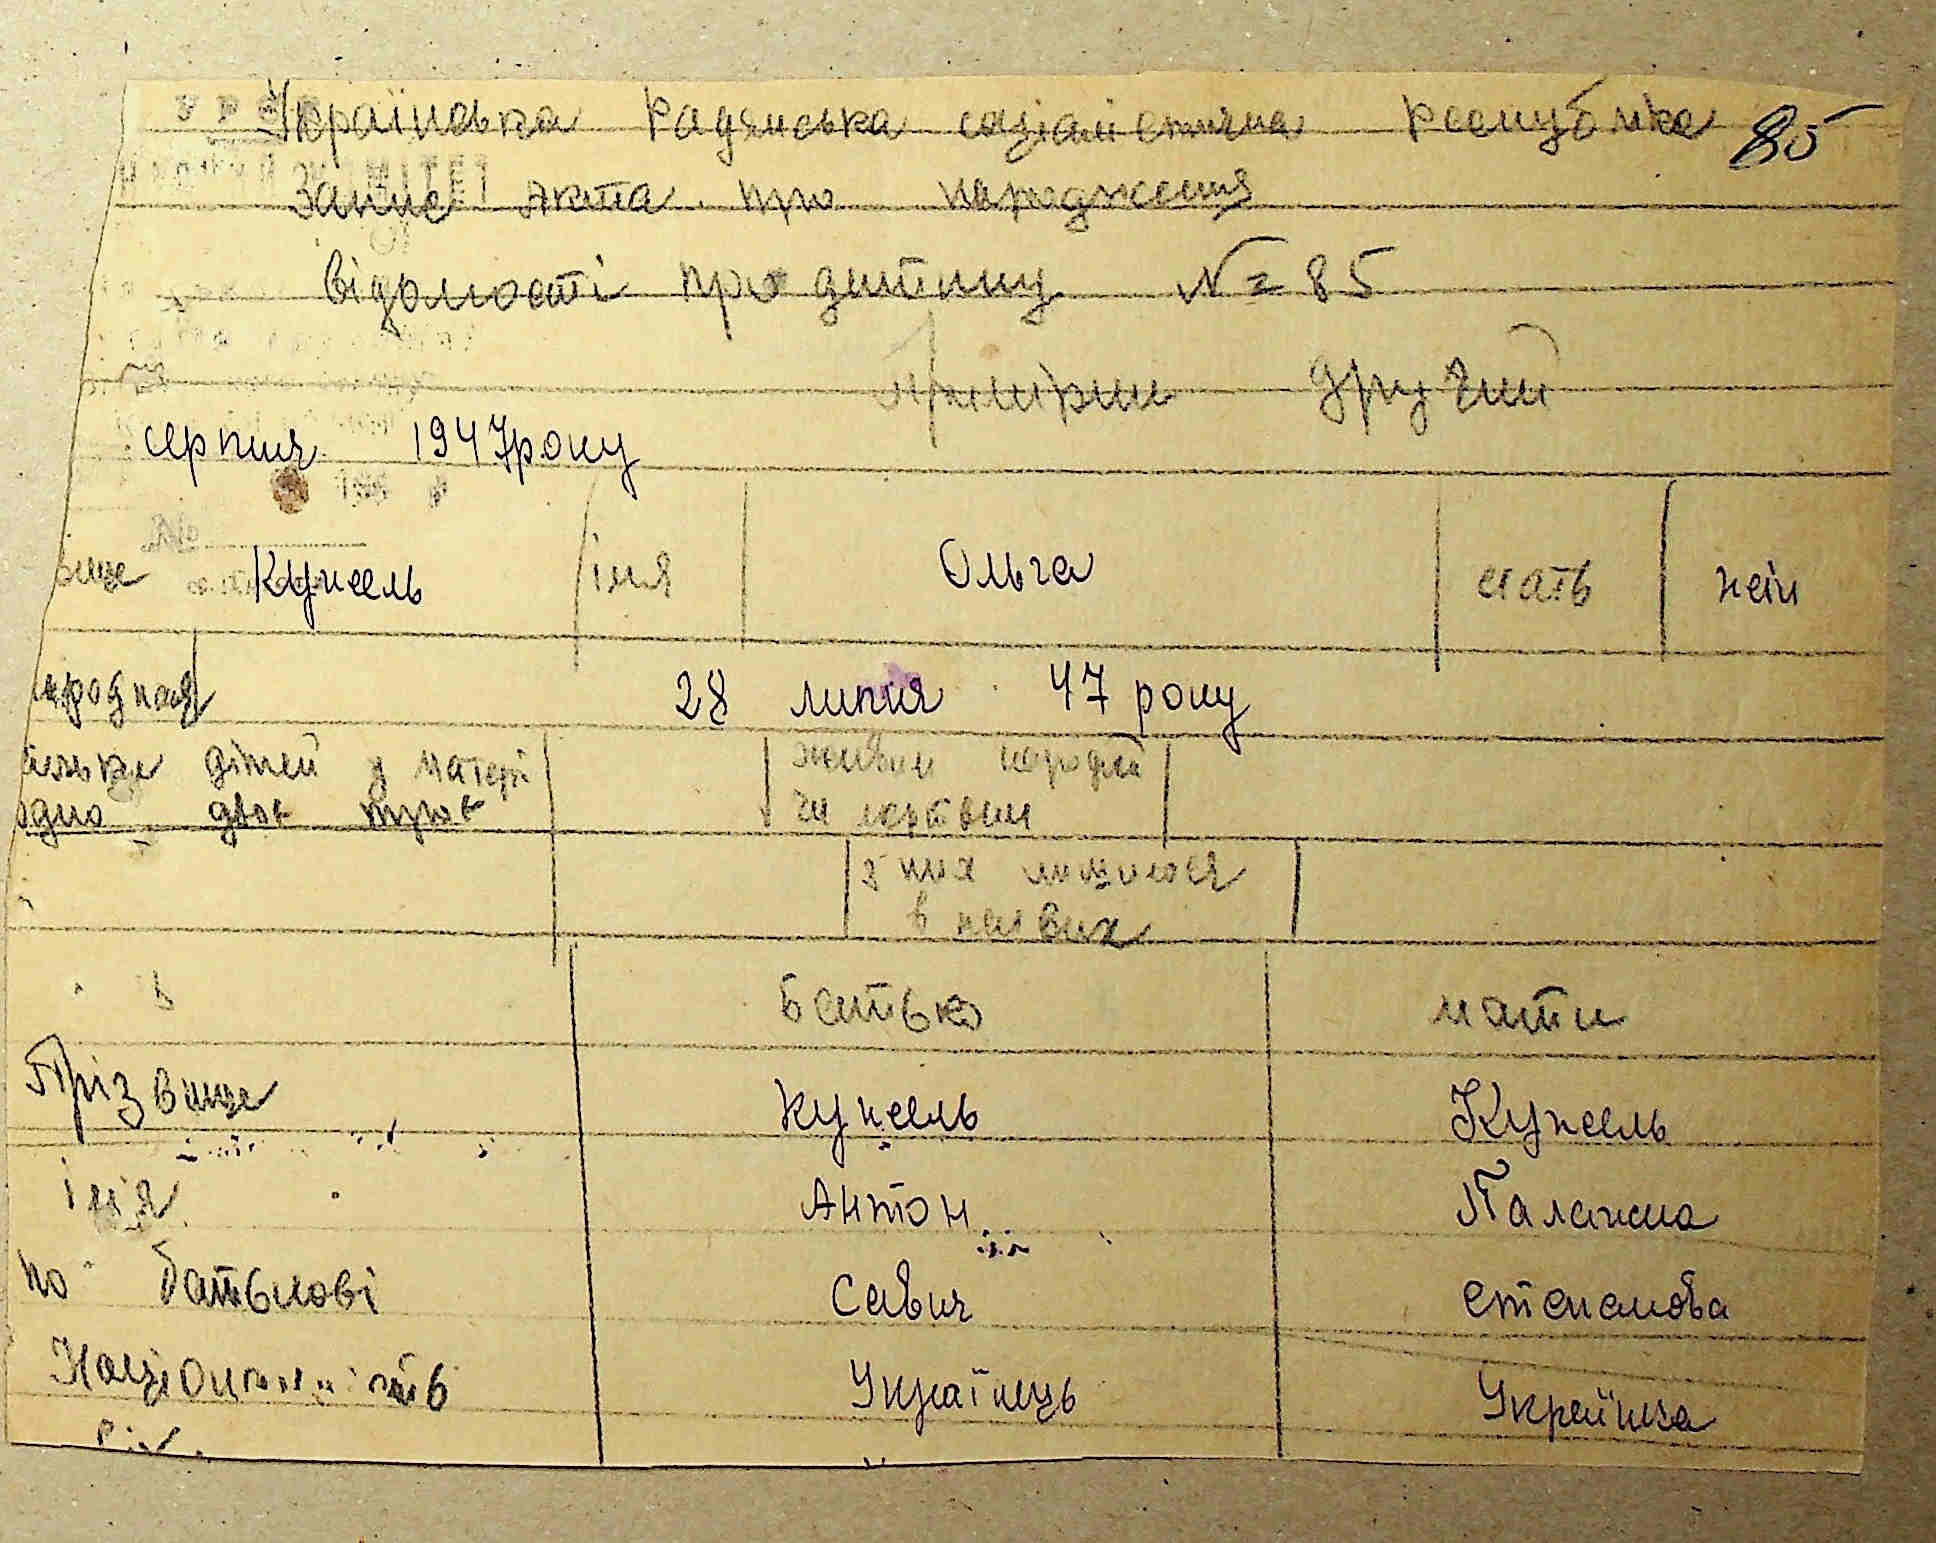 Українська Радянська соціалістична Республіка 85
Запис акта про народження
Відомості про дитину № 85
Примірник другий
серпня 1947 року
віще Кужель імя Ольга стать жін
народження 28 липня 47 року
кілька дітей у матері живим народж
одно двоє троє чи мертвим
з них лишилося
в живих
батько мати
Прізвище Кужель Кужель
імя Антон Палажка
по батькові Савич Степанова
Національність Українець Українка